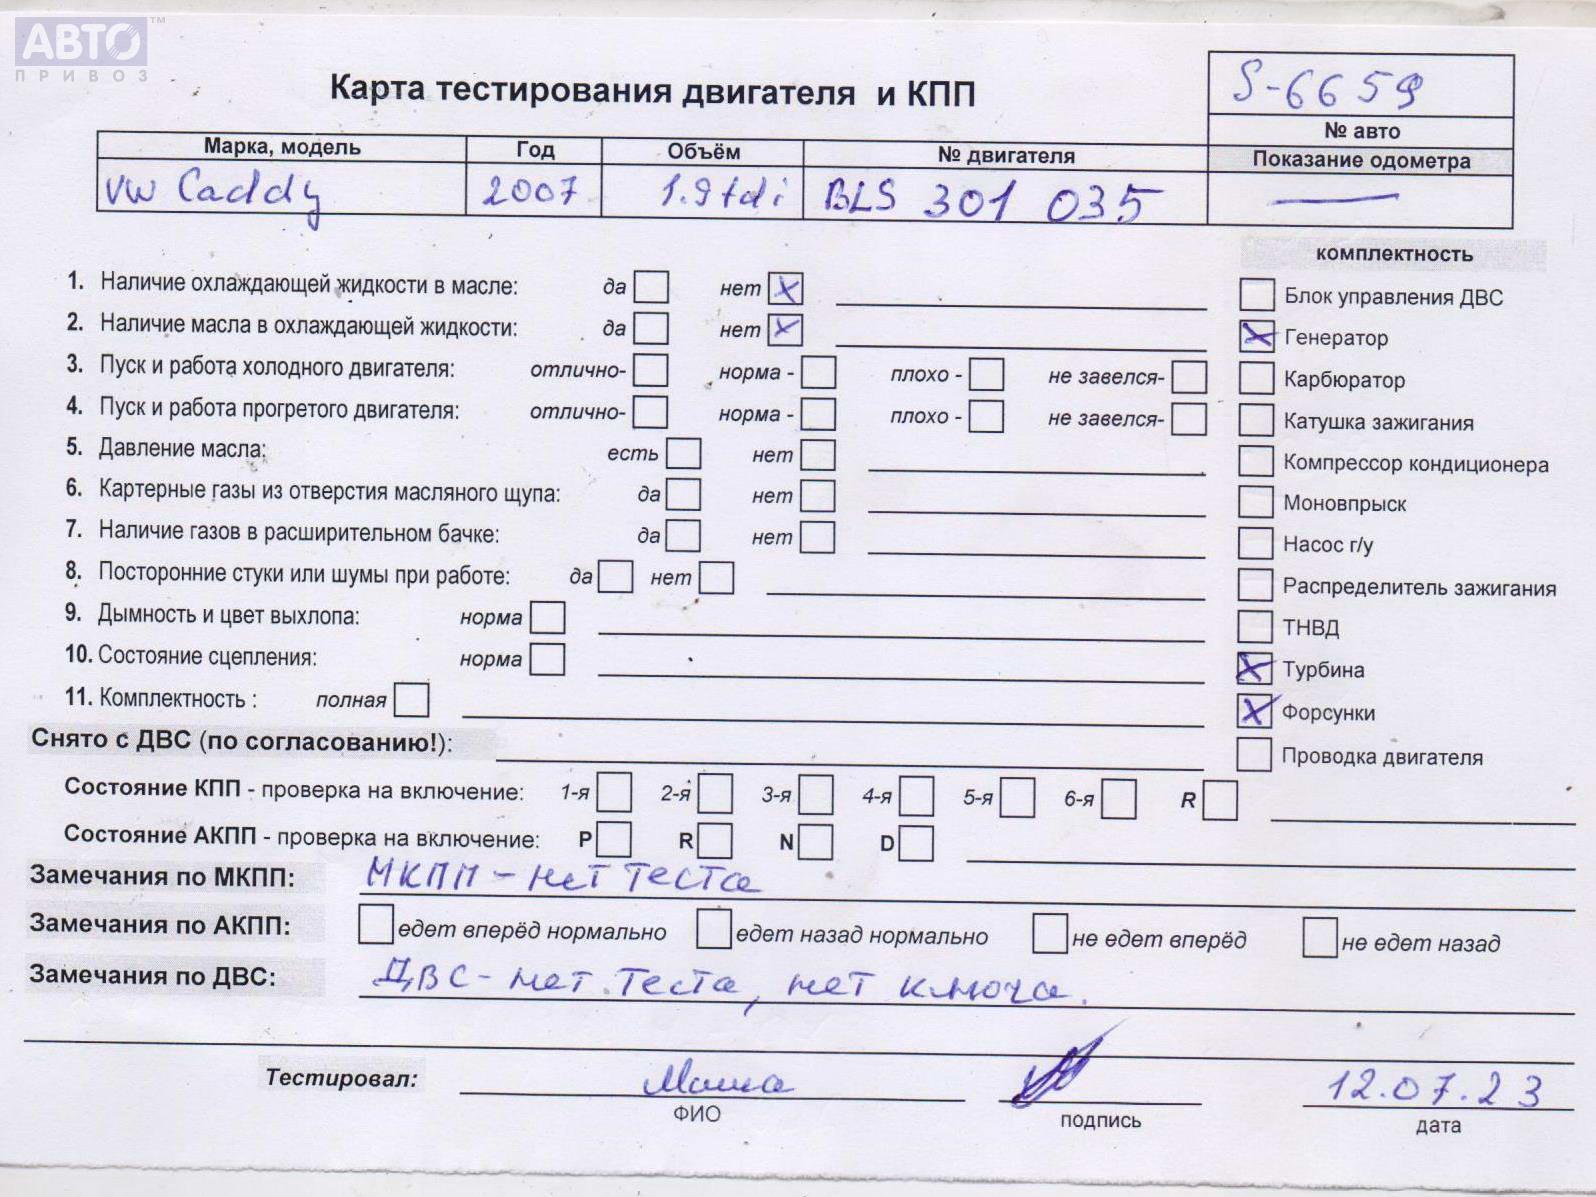 АВТО™
ПРИВОЗ
Карта тестирования двигателя и КПП
S-6659
№ авто
Марка, модель Год Объём № двигателя Показание одометра
VW Caddy 2007 1.9 tdi BLS 301 035 —
комплектность
1. Наличие охлаждающей жидкости в масле: да нет X
Блок управления ДВС
2. Наличие масла в охлаждающей жидкости: да нет X
X Генератор
3. Пуск и работа холодного двигателя: отлично- норма - плохо - не завелся-
Карбюратор
4. Пуск и работа прогретого двигателя: отлично- норма - плохо - не завелся-
Катушка зажигания
5. Давление масла: есть нет
Компрессор кондиционера
6. Картерные газы из отверстия масляного щупа: да нет
Моновпрыск
7. Наличие газов в расширительном бачке: да нет
Насос г/у
8. Посторонние стуки или шумы при работе: да нет
Распределитель зажигания
9. Дымность и цвет выхлопа: норма
ТНВД
10. Состояние сцепления: норма
X Турбина
11. Комплектность : полная
X Форсунки
Снято с ДВС (по согласованию!):
Проводка двигателя
Состояние КПП - проверка на включение: 1-я 2-я 3-я 4-я 5-я 6-я R
Состояние АКПП - проверка на включение: P R N D
Замечания по МКПП: МКПП - нет теста
Замечания по АКПП: едет вперёд нормально едет назад нормально не едет вперёд не едет назад
Замечания по ДВС: ДВС - нет теста, нет ключа.
Тестировал: Маша 12.07.23
ФИО подпись дата